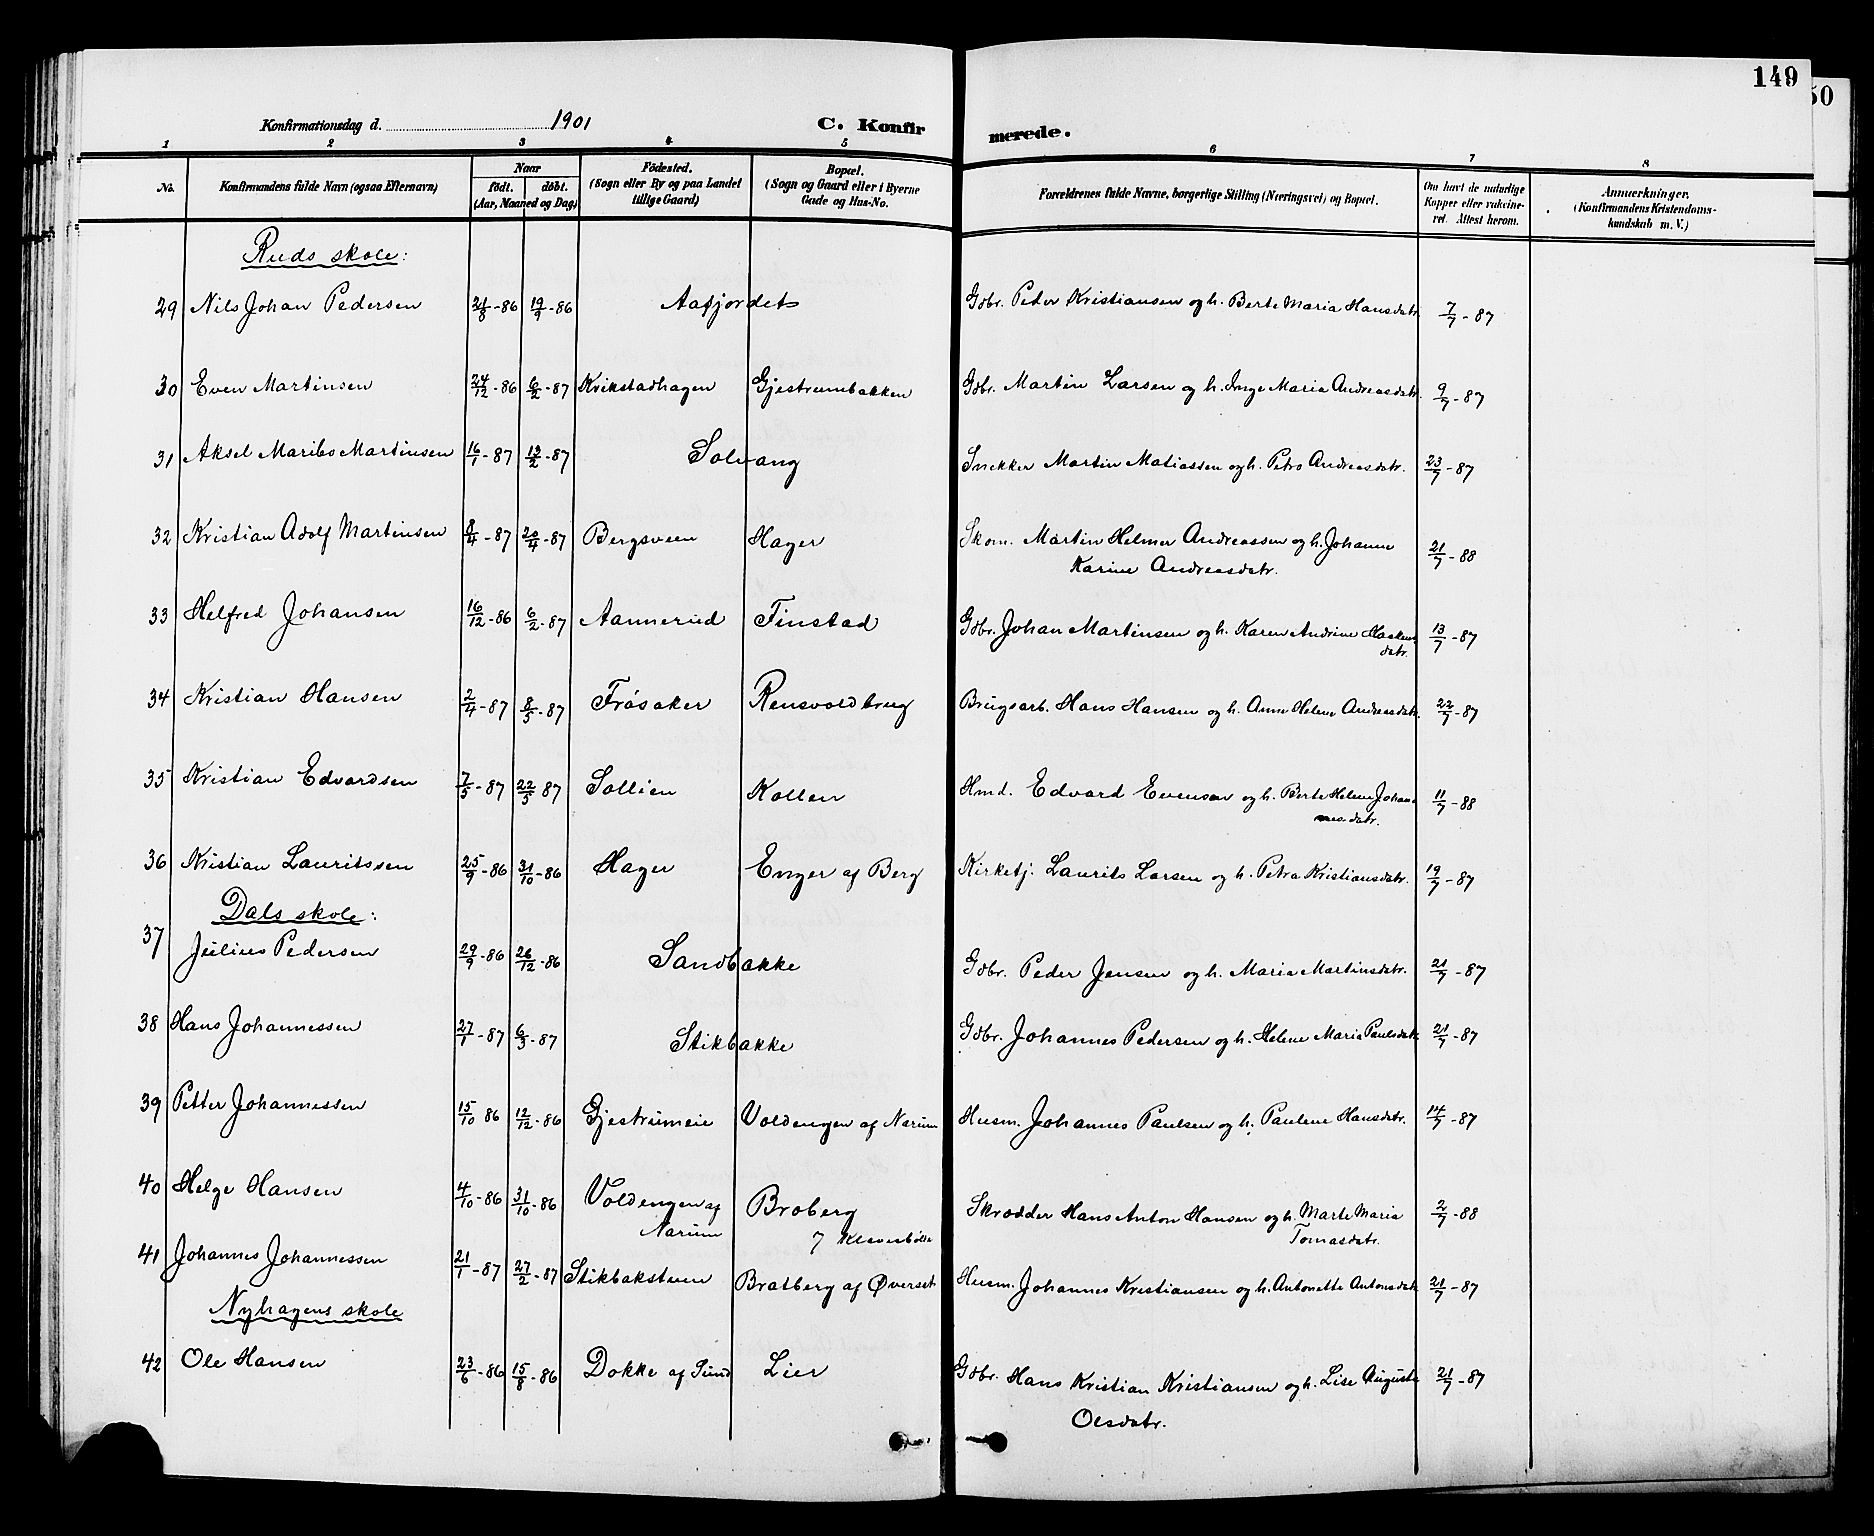 149
50
Konfirmationsdag d. 1901 C. Konfirmerede.
1 2 3 4 5 6 7 8
No. Konfirmandens fulde Navn (ogsaa Efternavn) Naar født. døbt. (Aar, Maaned og Dag) Fødested. (Sogn eller By og paa Landet tillige Gaard) Bopæl. (Sogn og Gaard eller i Byerne Gade og Hus-No. Forældrenes fulde Navne, borgerlige Stilling (Næringsvei) og Bopæl. Om havt de naturlige Kopper eller vakcineret. Attest herom. Anmærkninger. (Konfirmandens Kristendomskundskab m. V.)
Ruds skole:
29 Nils Johan Pedersen 21/8-86 19/9-86 Aafjordet Gdbr. Peder Kristiansen og h. Berte Maria Hansdatr. 7/7-87
30 Even Martinsen 24/12-86 6/2-87 Krikstadhagen Gjestrumbakken Gdbr. Martin Larsen og h. Inge Maria Andreasdatr. 9/7-87
31 Aksel Martinsen 16/1-87 13/2-87 Solvang Snekker Martin Matiassen og h. Petra Andreasdatr. 23/7-87
32 Kristian Adolf Martinsen 8/4-87 20/4-87 Bergsveen Hager Skom. Martin Helmer Andreassen og h. Johanne
Karine Andreasdatr. 21/7-88
33 Helfred Johansen 16/12-86 6/2-87 Aannerud Finstad Gdbr. Johan Martinsen og h. Karen Andrine Haakens
datr. 13/7-87
34 Kristian Hansen 2/4-87 8/5-87 Frøsaker Rensvoldbrug Brugsarb. Hans Hansen og h. Anne Helene Andreasdatr. 22/7-87
35 Kristian Edvardsen 7/5-87 22/5 87 Sollien Kollen Hmd. Edvard Evensen og h. Berte Helene Johan
nesdatr. 11/7-88
36 Kristian Lauritssen 25/9-86 31/10-86 Hager Enger af Berg Kirketj. Laurits Larsen og h. Petra Kristiansdatr. 19/7-87
Dals skole:
37 Julius Pedersen 29/9-86 26/12-86 Sandbakke Gdbr. Peder Jensen og h. Maria Martinsdatr. 21/7-87
38 Hans Johannessen 27/1-87 6/3-87 Stikbakke Gdbr. Johannes Pedersen og h. Helene Maria Paulsdatr. 21/7-87
39 Petter Johannessen 15/10 86 12/12-86 Gjestrumeie Voldengen af Narum Husm. Johannes Paulsen og h. Paulene Hansdatr. 14/7-87
40 Helge Hansen 4/10-86 31/10-86 Voldengen af
Narum Broberg Skrædder Hans Anton Hansen og h. Marte Maria
Tomasdatr. 2/7-88
41 Johannes Johannessen 21/1-87 27/2-87 Stikbaksteen Bratberg af Øverset Husm. Johannes Kristiansen og h. Antonette Antonsdatr. 21/7-87
Nyhagens skole
42 Ole Hansen 23/6-86 15/8-86 Dokke af Sund Lier Gdbr. Hans Kristian Kristiansen og h. Lise Auguste
Olsdatr. 21/7-87